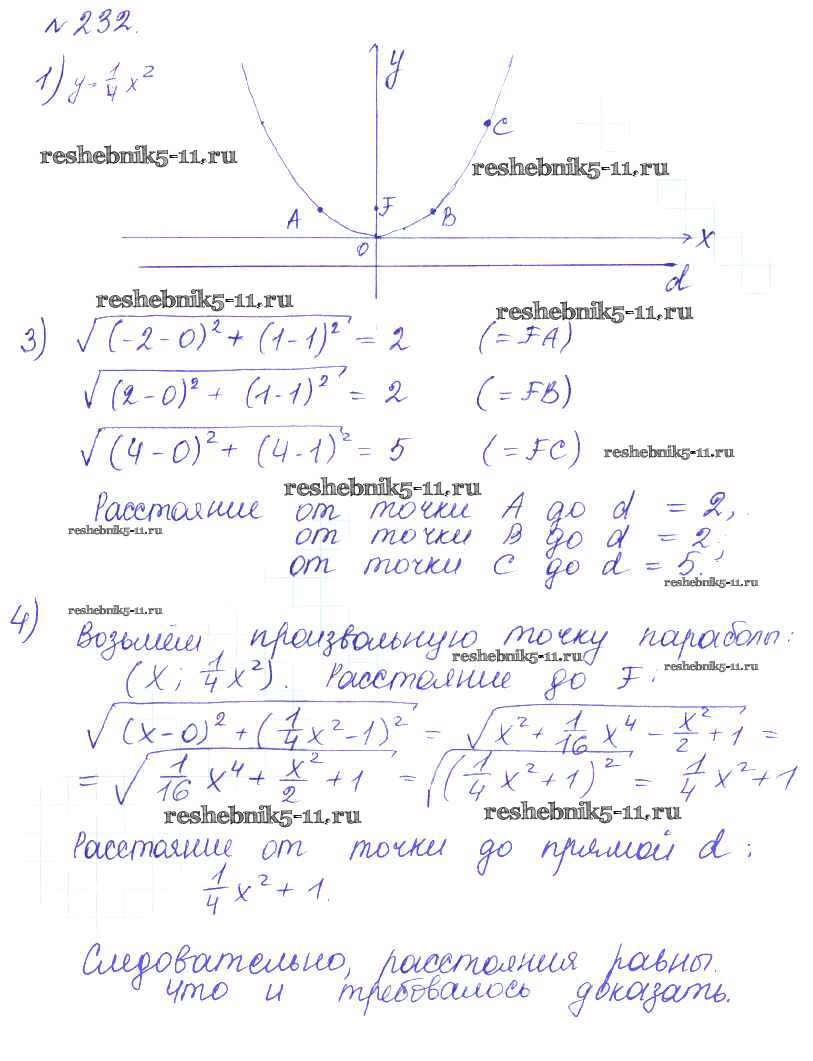 № 232.
1) y = 1/4 x²
y
C
reshebnik5-11.ru
reshebnik5-11.ru
A F B
O x
d
reshebnik5-11.ru
reshebnik5-11.ru
3) √((-2-0)² + (1-1)²) = 2 (= FA)
√((2-0)² + (1-1)²) = 2 (= FB)
√((4-0)² + (4-1)²) = 5 (= FC)
reshebnik5-11.ru
reshebnik5-11.ru
Расстояние от точки A до d = 2,
reshebnik5-11.ru
от точки B до d = 2;
от точки C до d = 5.
reshebnik5-11.ru
reshebnik5-11.ru
4) Возьмём произвольную точку параболы:
reshebnik5-11.ru
reshebnik5-11.ru
(x; 1/4 x²). Расстояние до F:
√((x-0)² + (1/4 x² - 1)²) = √(x² + 1/16 x⁴ - x²/2 + 1) =
= √(1/16 x⁴ + x²/2 + 1) = √((1/4 x² + 1)²) = 1/4 x² + 1
reshebnik5-11.ru
reshebnik5-11.ru
Расстояние от точки до прямой d:
1/4 x² + 1.
Следовательно, расстояния равны.
что и требовалось доказать.